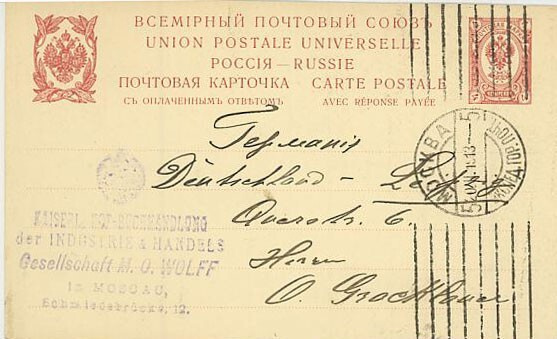 ВСЕМІРНЫЙ ПОЧТОВЫЙ СОЮЗЪ
UNION POSTALE UNIVERSELLE
РОССІЯ — RUSSIE
ПОЧТОВАЯ КАРТОЧКА — CARTE POSTALE
СЪ ОПЛАЧЕННЫМЪ ОТВѢТОМЪ AVEC RÉPONSE PAYÉE
Германія
Deutschland - Leipzig
Querstr. 6.
Herrn
O.
МОСКВА
KAISERL. HOF-BUCHHANDLUNG
der INDUSTRIE & HANDELS
Gesellschaft M. O. WOLFF
in MOSCAU,
Schmiedebrücke, 12.